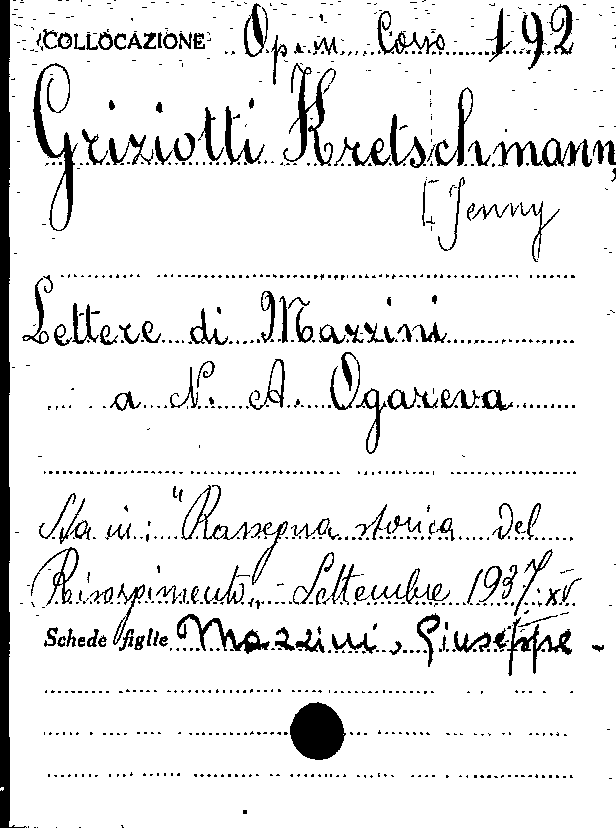 COLLOCAZIONE Op. in Corso 192
Griziotti Kretschmann,
[Jenny
Lettere di Mazzini
a N. A. Ogareva
Sta in: "Rassegna storica del
Risorgimento„ - Settembre 1937. XV
Schede figlie Mazzini, Giuseppe -